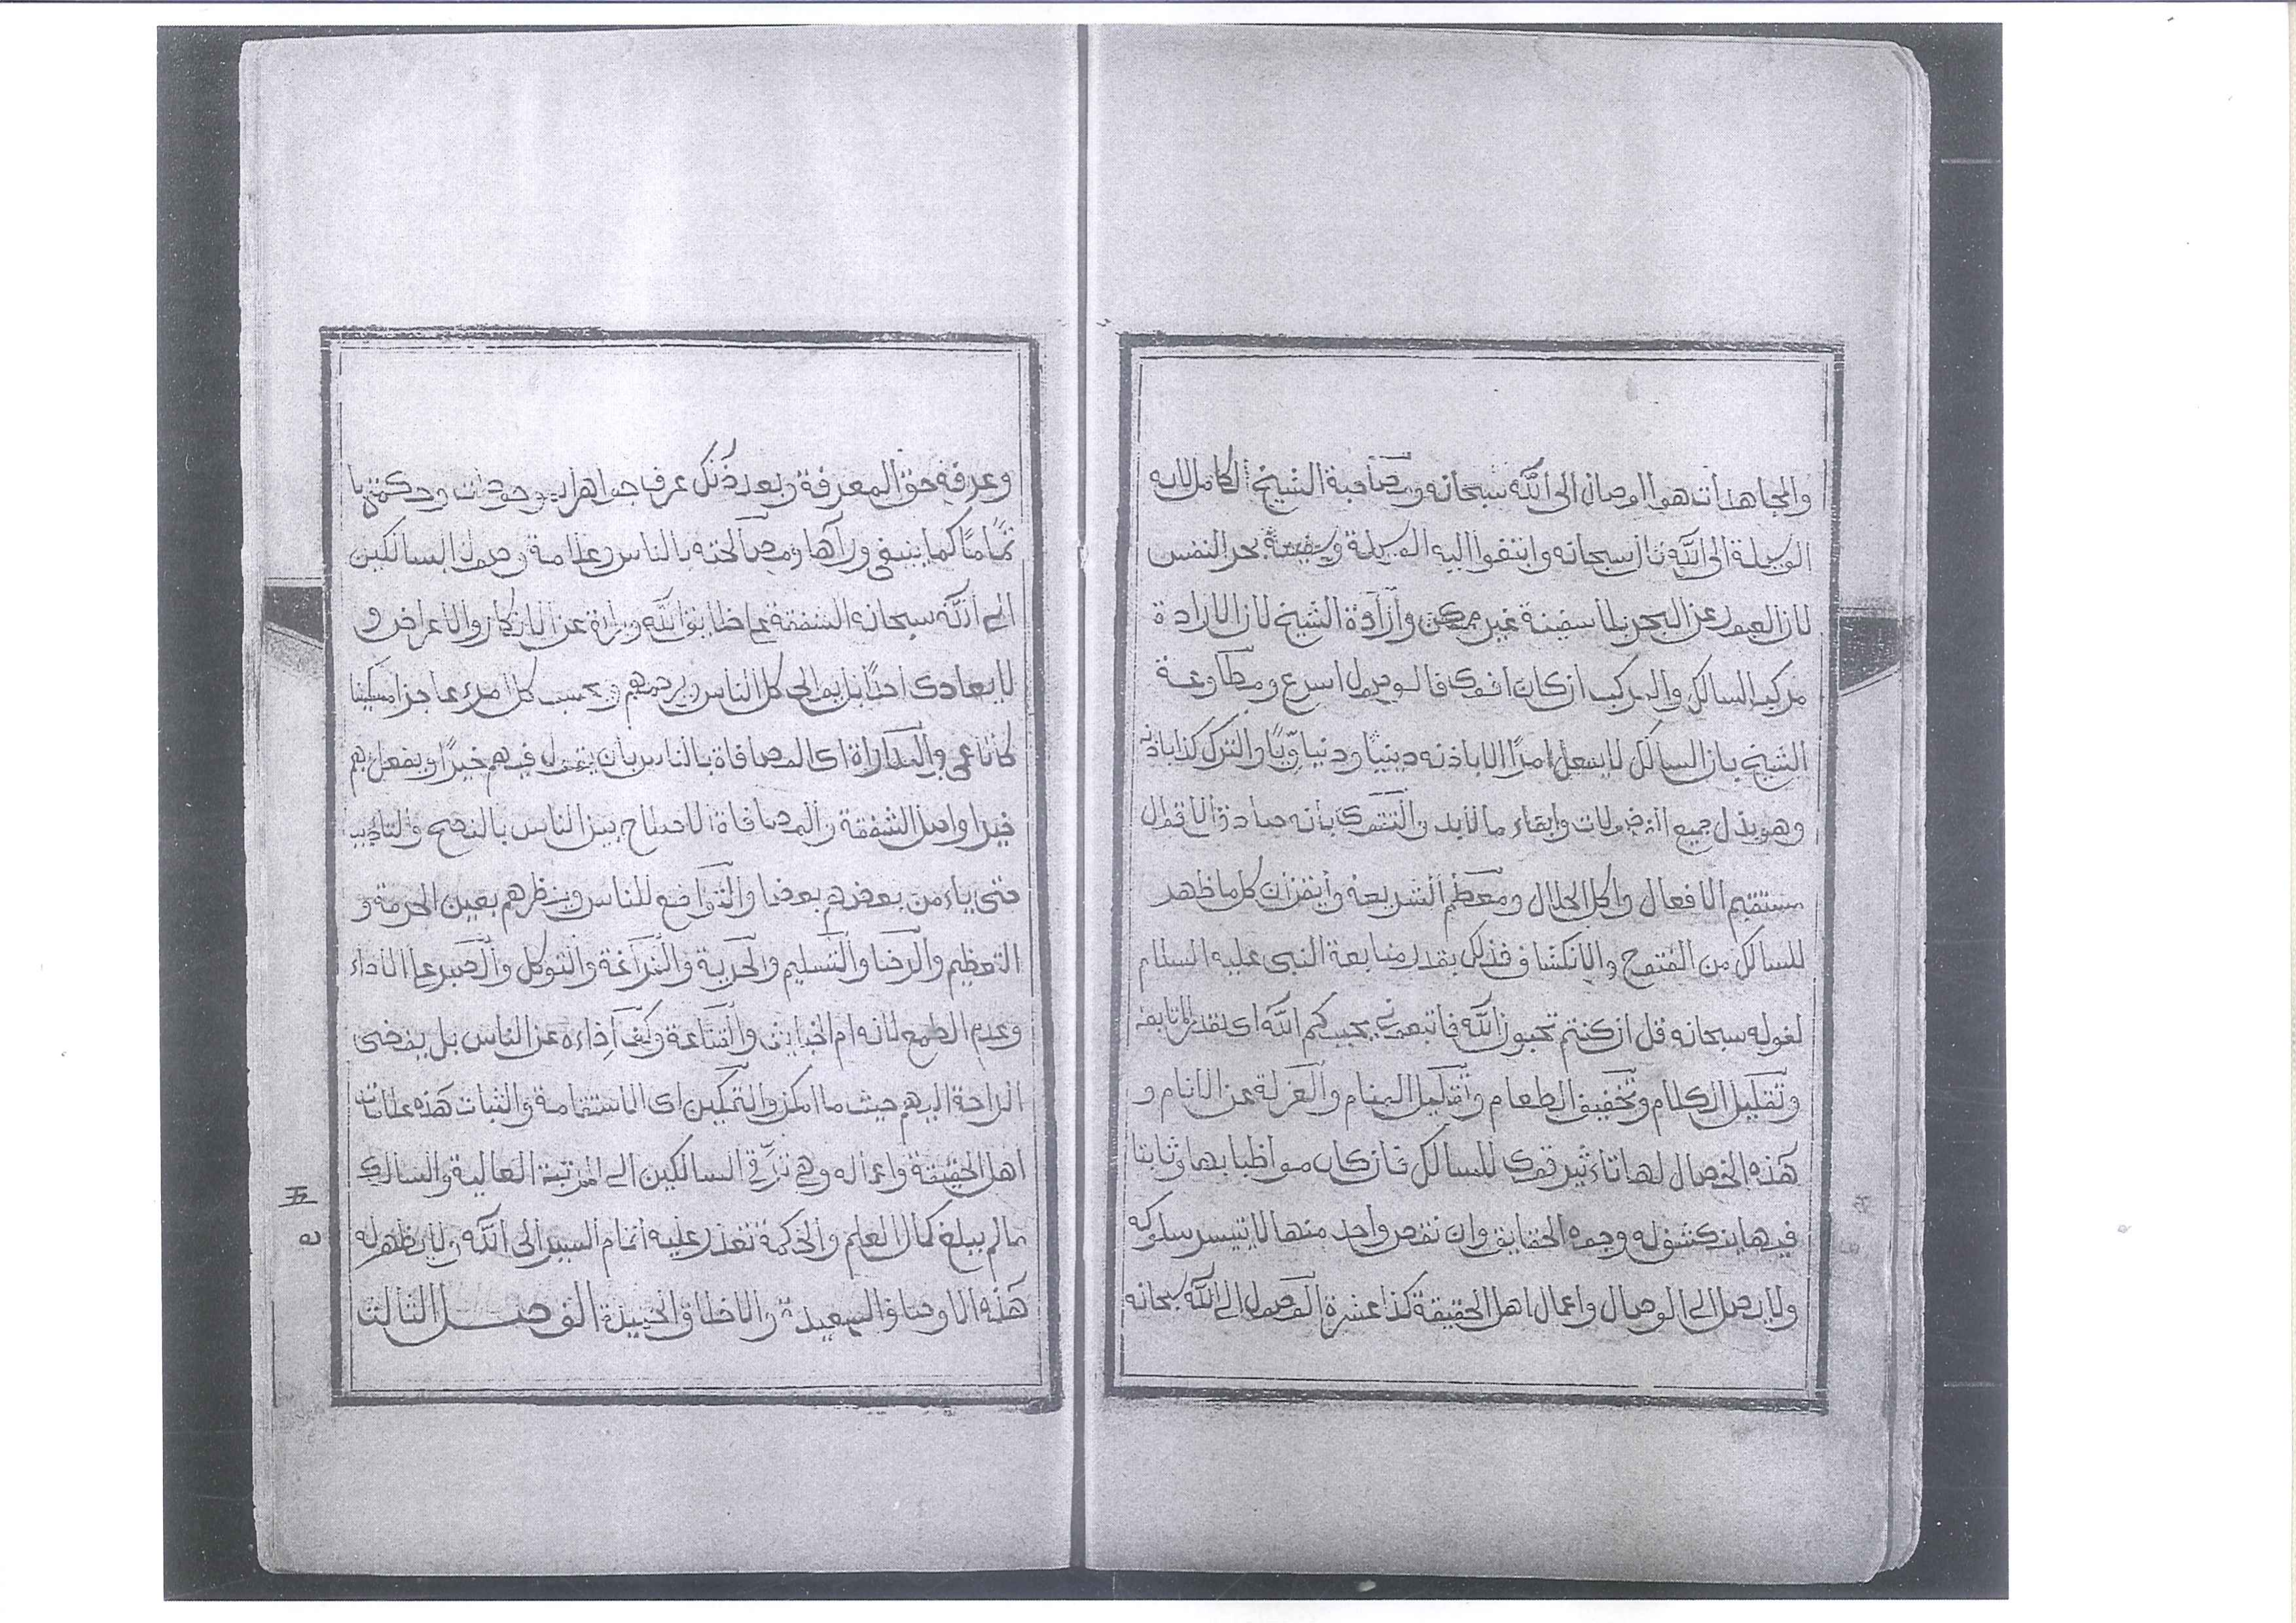 والمجاهدات هو الوصال الى الله سبحانه ومصاحبة الشيخ الكامل لانه
الوسيلة الى الله قال سبحانه وابتغوا اليه الوسيلة وسفينة بحر النفس
لان العبور عن البحر بلا سفينة غير ممكن وارادة الشيخ لان الارادة
مركب السالك والمركب ان كان اقوى فالوصول اسرع ومطاوعة
الشيخ بان السالك لا يفعل امرًا الا باذنه دينيًا ودنياويًّا والترك كذا باذنه
وهو بذل جميع الفضولات وابقاء ما لابد والتقوى بانه صادق الاقوال
مستقيم الافعال واكل الحلال ومعظم الشريعة وايقن ان كل ما ظهر
للسالك من الفتوح والانكشاف فذلك بقدر متابعة النبى عليه السلام
لقوله سبحانه قل ان كنتم تحبون الله فاتبعونى يحببكم الله اى بقدر المتابعة
وتقليل الكلام وتخفيف الطعام وتقليل المنام والعزلة عن الانام و
هذه الخصال لها تاءثير قوى للسالك فان كان مواظبا بها وثابتا
فيها ينكشف له وجوه الحقايق وان نقص واحد منها لا يتيسر سلوكه
ولا يصل الى الوصال واعمال اهل الحقيقة كذا عشرة الوصول الى الله سبحانه
وعرفه حق المعرفة وبعد ذلك عرف جواهر الموجودات وحكمتها
تمامًا كما ينبغى ورآها ومصالحته بالناس وعلامة وصول السالكين
الى الله سبحانه الشفقة على خلايق الله وبراءة عن الانكار والاعراض و
لا يعادى احدًا بل يوالى كل الناس ويرحمهم ويحسب كل امرء عاجزا مسكينا
كالاعمى والمداراة اى المصافاة بالناس بان يقول فيهم خيرًا ويفعل بهم
خيرا واصل الشفقة والمصافاة الاصلاح بين الناس بالنصح والتاديب
حتى ياءمن بعضهم بعضا والتواضع للناس وينظرهم بعين الحرمة و
التعظيم والرضا والتسليم والحرية والفراغة والتوكل والصبر على الاداء
وعدم الطمع لانه ام الخبايث والقناعة وكف اذاءه عن الناس بل يفضى
الراحة اليهم حيث ما امكن والتمكين اى الاستقامة والثبات هذه علامات
اهل الحقيقة واعماله وهى ترقّى السالكين الى المرتبة العالية والسالك
مالم يبلغ كمال العلم والحكمة تعذر عليه اتمام السير الى الله ولا يظهر له
هذه الاوصاف السعيدة والاخلاق الحميدة الفصل الثالث
五